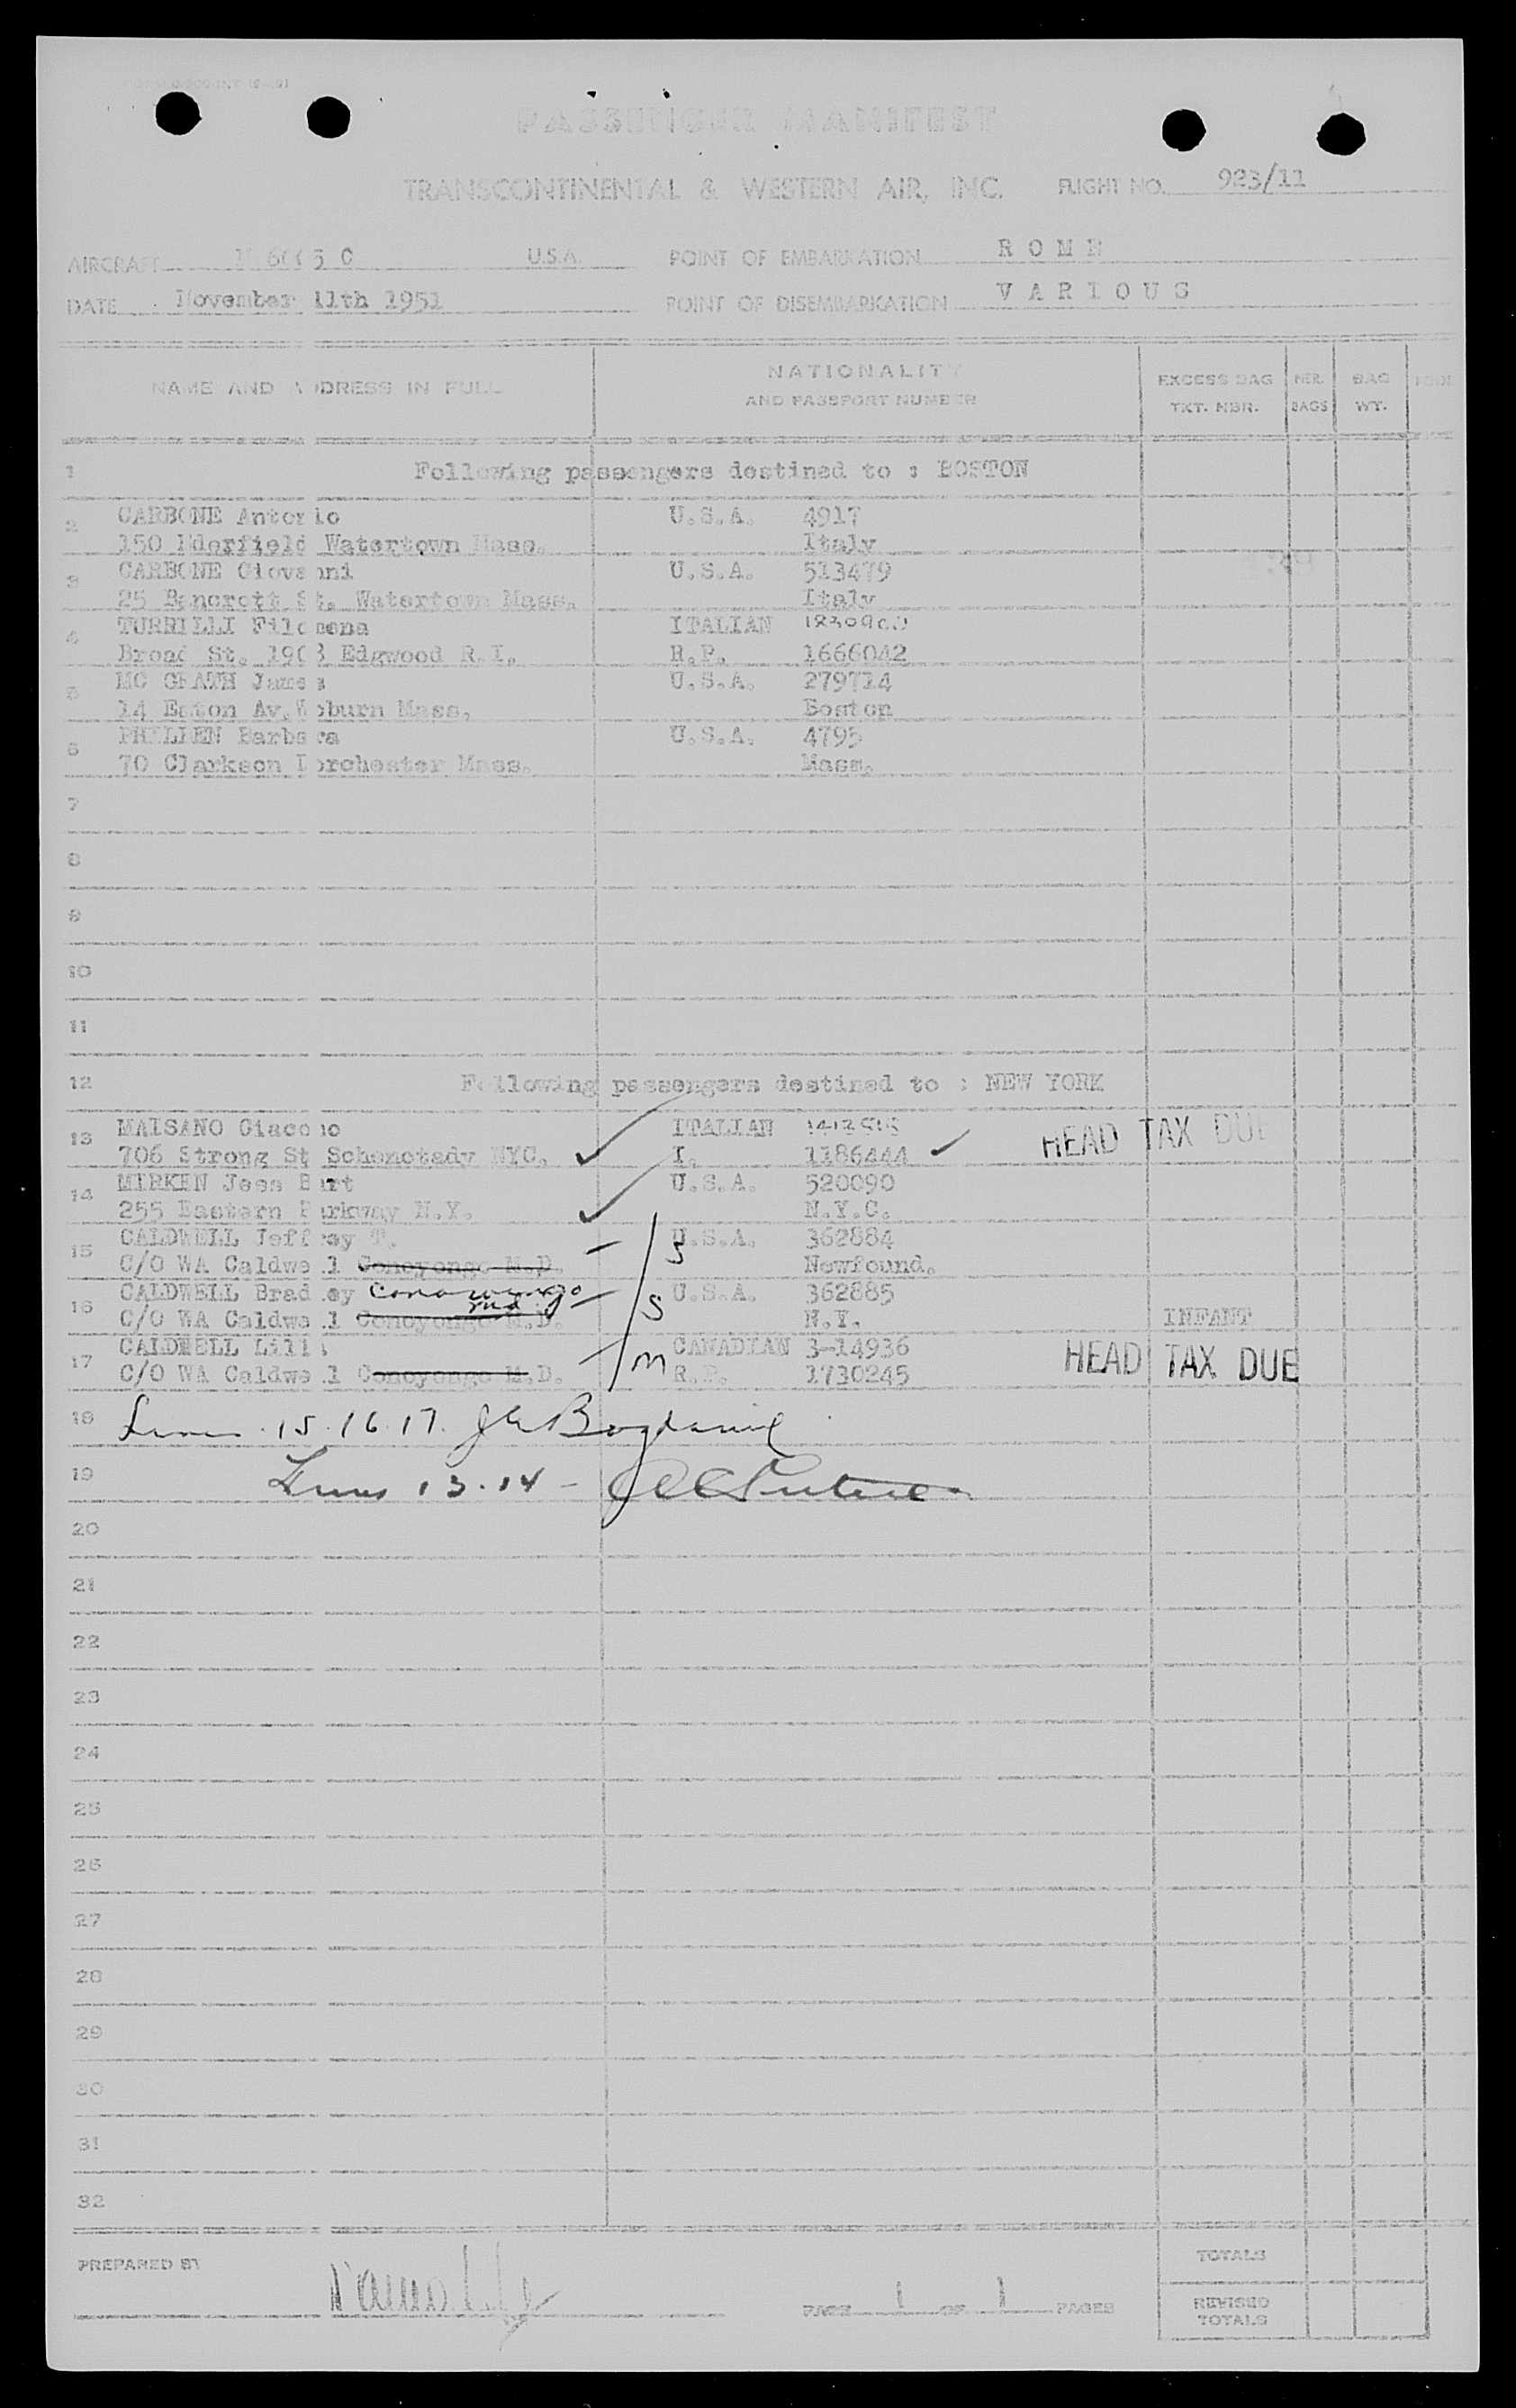 PASSENGER MANIFEST
TRANSCONTINENTAL & WESTERN AIR, INC. FLIGHT NO. 923/11
AIRCRAFT U.S.A. POINT OF EMBARKATION ROME
DATE November 11th 1951 POINT OF DISEMBARKATION VARIOUS
NAME AND ADDRESS IN FULL NATIONALITY AND PASSPORT NUMBER EXCESS BAG TKT. NBR. NBR. BAGS BAG WT.
1 Following passengers destined to : BOSTON
2 CARBONE Antonio U.S.A. 4917
150 Watertown Mass. Italy
3 CARBONE Giovanni U.S.A. 513479
25 Bancrott St. Watertown Mass. Italy
4 TURRILLI Filomena ITALIAN
Broad St. 1903 Edgwood R.I. R.P. 1666042
5 MC GRATH James U.S.A. 279714
14 Eaton Av. Woburn Mass. Boston
6 Barbara U.S.A. 4795
70 Clarkson Dorchester Mass. Mass.
7
8
9
10
11
12 Following passengers destined to : NEW YORK
13 MAISANO Giacomo ITALIAN HEAD TAX DUE
706 Strong St Schenectady NYC. I. 1186444
14 MIRKEN Jess Burt U.S.A. 520090
255 Eastern Parkway N.Y. N.Y.C.
15 CALDWELL Jeffrey T. U.S.A. 362884
C/O WA Caldwell Conoyongo M.D. S Newfound.
16 CALDWELL Bradley Conowingo U.S.A. 362885
C/O WA Caldwell Conoyongo M.D. md S N.Y. INFANT
17 CALDWELL Lilli CANADIAN 3-14936 HEAD TAX DUE
C/O WA Caldwell Conoyongo M.D. M R.P. 1730245
18 Lines 15.16.17.
19 Lines 13.14 -
20
21
22
23
24
25
26
27
28
29
30
31
32
PREPARED BY
PAGE 1 OF 1 PAGES
TOTALS
REVISED TOTALS